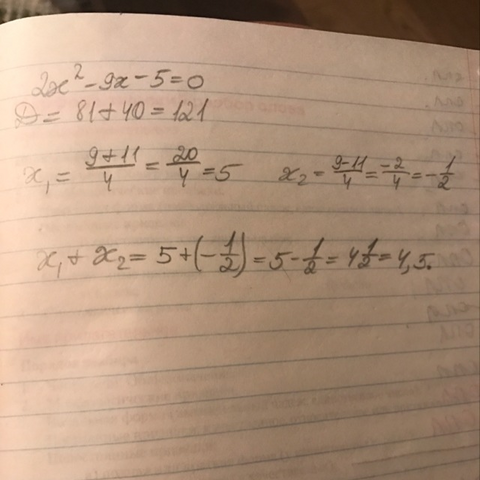 2x² - 9x - 5 = 0
D = 81 + 40 = 121
x₁ = (9+11)/4 = 20/4 = 5 x₂ = (9-11)/4 = -2/4 = -1/2
x₁ + x₂ = 5 + (-1/2) = 5 - 1/2 = 4 1/2 = 4,5.